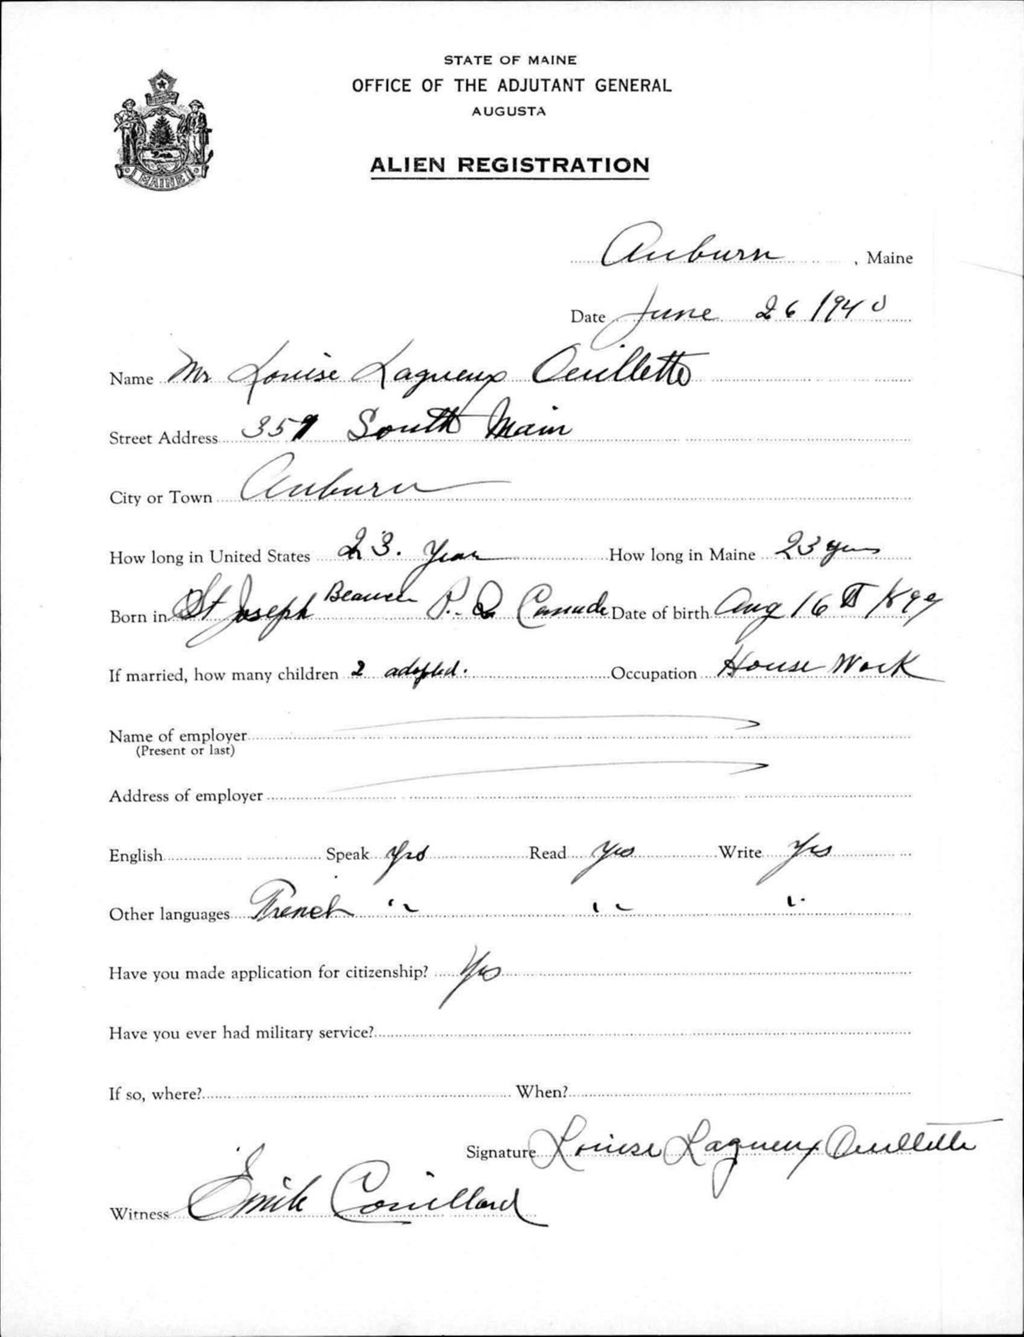 STATE OF MAINE
OFFICE OF THE ADJUTANT GENERAL
AUGUSTA
ALIEN REGISTRATION
MAINE
Auburn, Maine
Date June 26 1940
Name Mr Louise Lagueux Ouillette
Street Address 359 South Main
City or Town Auburn
How long in United States 23. Year How long in Maine 23 yrs
Born in St Joseph Beauce P. Q Canada Date of birth Aug 16 1899
If married, how many children 2 adopted. Occupation House Work
Name of employer
(Present or last)
Address of employer
English Speak Yes Read Yes Write Yes
Other languages French " " "
Have you made application for citizenship? Yes
Have you ever had military service?
If so, where? When?
Signature Louise Lagueux Ouillette
Witness Emile Couillard